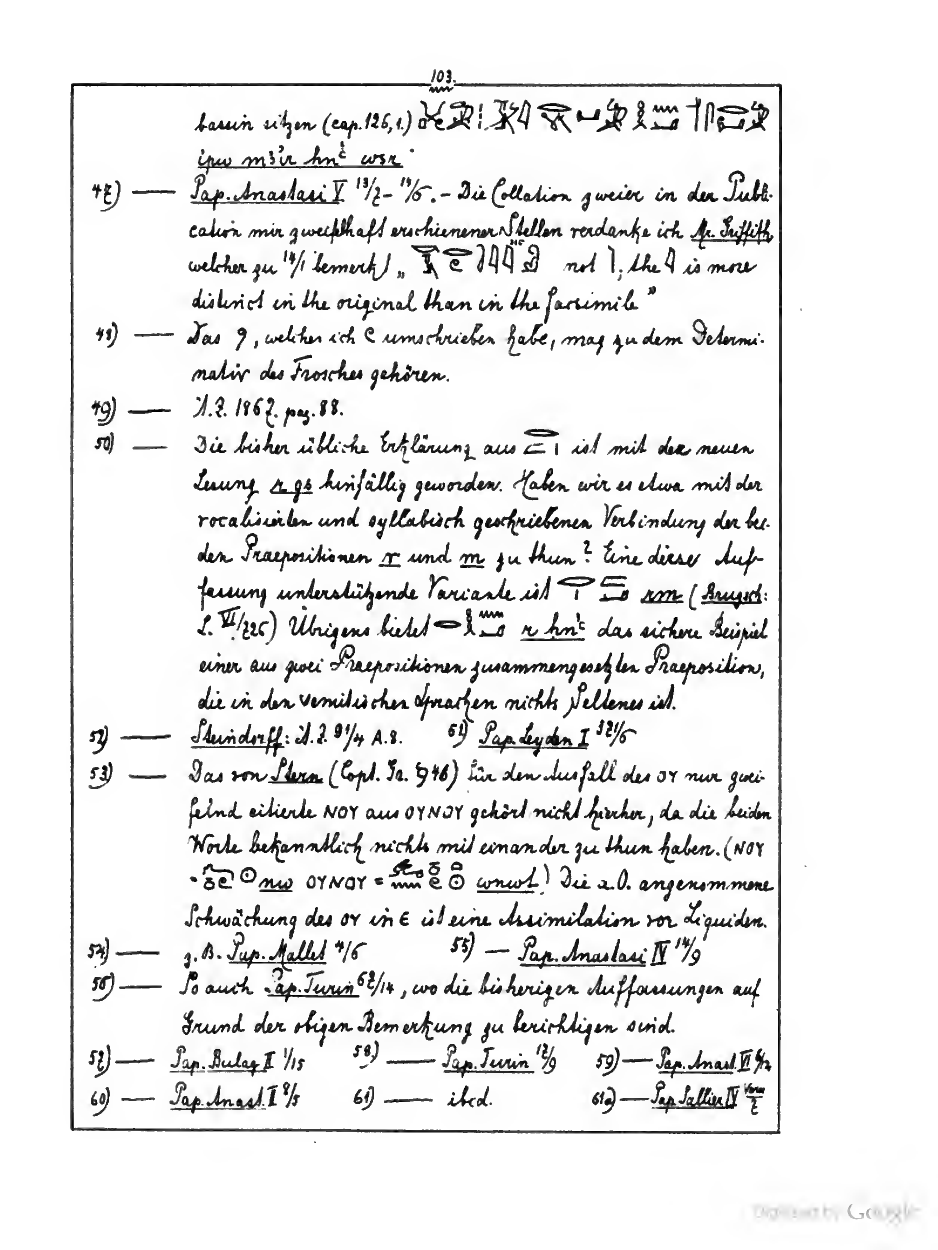 103.
bassin sitzen (cap. 126,1.)
ipw m3ʿir hnʿ wsr
47) — Pap. Anastasi V 13/7 - 14/5. - Die Collation zweier in der Publi-
cation mir zweifelhaft erschienener Stellen verdanke ich Mr. Griffith,
welcher zu 14/1 bemerkt „ not , the is more
distinct in the original than in the facsimile"
48) — Das 9, welches ich umschrieben habe, mag zu dem Determi-
nativ des Frosches gehören.
49) — Ä.Z. 1867. pag. 88.
50) — Die bisher übliche Erklärung aus ist mit der neuen
Lesung r gs hinfällig geworden. Haben wir es etwa mit der
vocalisierten und syllabisch geschriebenen Verbindung der bei-
den Praepositionen r und m zu thun? Eine diese Auf-
fassung unterstützende Variante ist rm (Brugsch:
L. VI/726) Übrigens bietet r hnʿ das sichere Beispiel
einer aus zwei Praepositionen zusammengesetzten Praeposition,
die in den semitischen Sprachen nichts Seltenes ist.
52) — Steindorff: Ä.Z. 91/4 A.8. 51) Pap. Leyden I 371/5
53) — Das von Stern (Copt. Gr. § 46) für den Ausfall des ⲟⲩ nur zwei-
felnd citierte ⲛⲟⲩ aus ⲟⲩⲛⲟⲩ gehört nicht hierher, da die beiden
Worte bekanntlich nichts mit einander zu thun haben. (ⲛⲟⲩ
= nw ⲟⲩⲛⲟⲩ = wnwt) Die a.O. angenommene
Schwächung des ⲟⲩ in ⲉ ist eine Assimilation vor Liquiden.
54) — z.B. Pap. Mallet 4/6 55) — Pap. Anastasi IV 14/9
56) — So auch Pap. Turin 62/14, wo die bisherigen Auffassungen auf
Grund der obigen Bemerkung zu berichtigen sind.
57) — Pap. Bulaq II 1/15 58) — Pap. Turin 17/9 59) — Pap. Anast. VI
60) — Pap. Anast. I 8/5 61) — ibid. 61a) — Pap. Sallier IV Verso 2
Digitized by Google